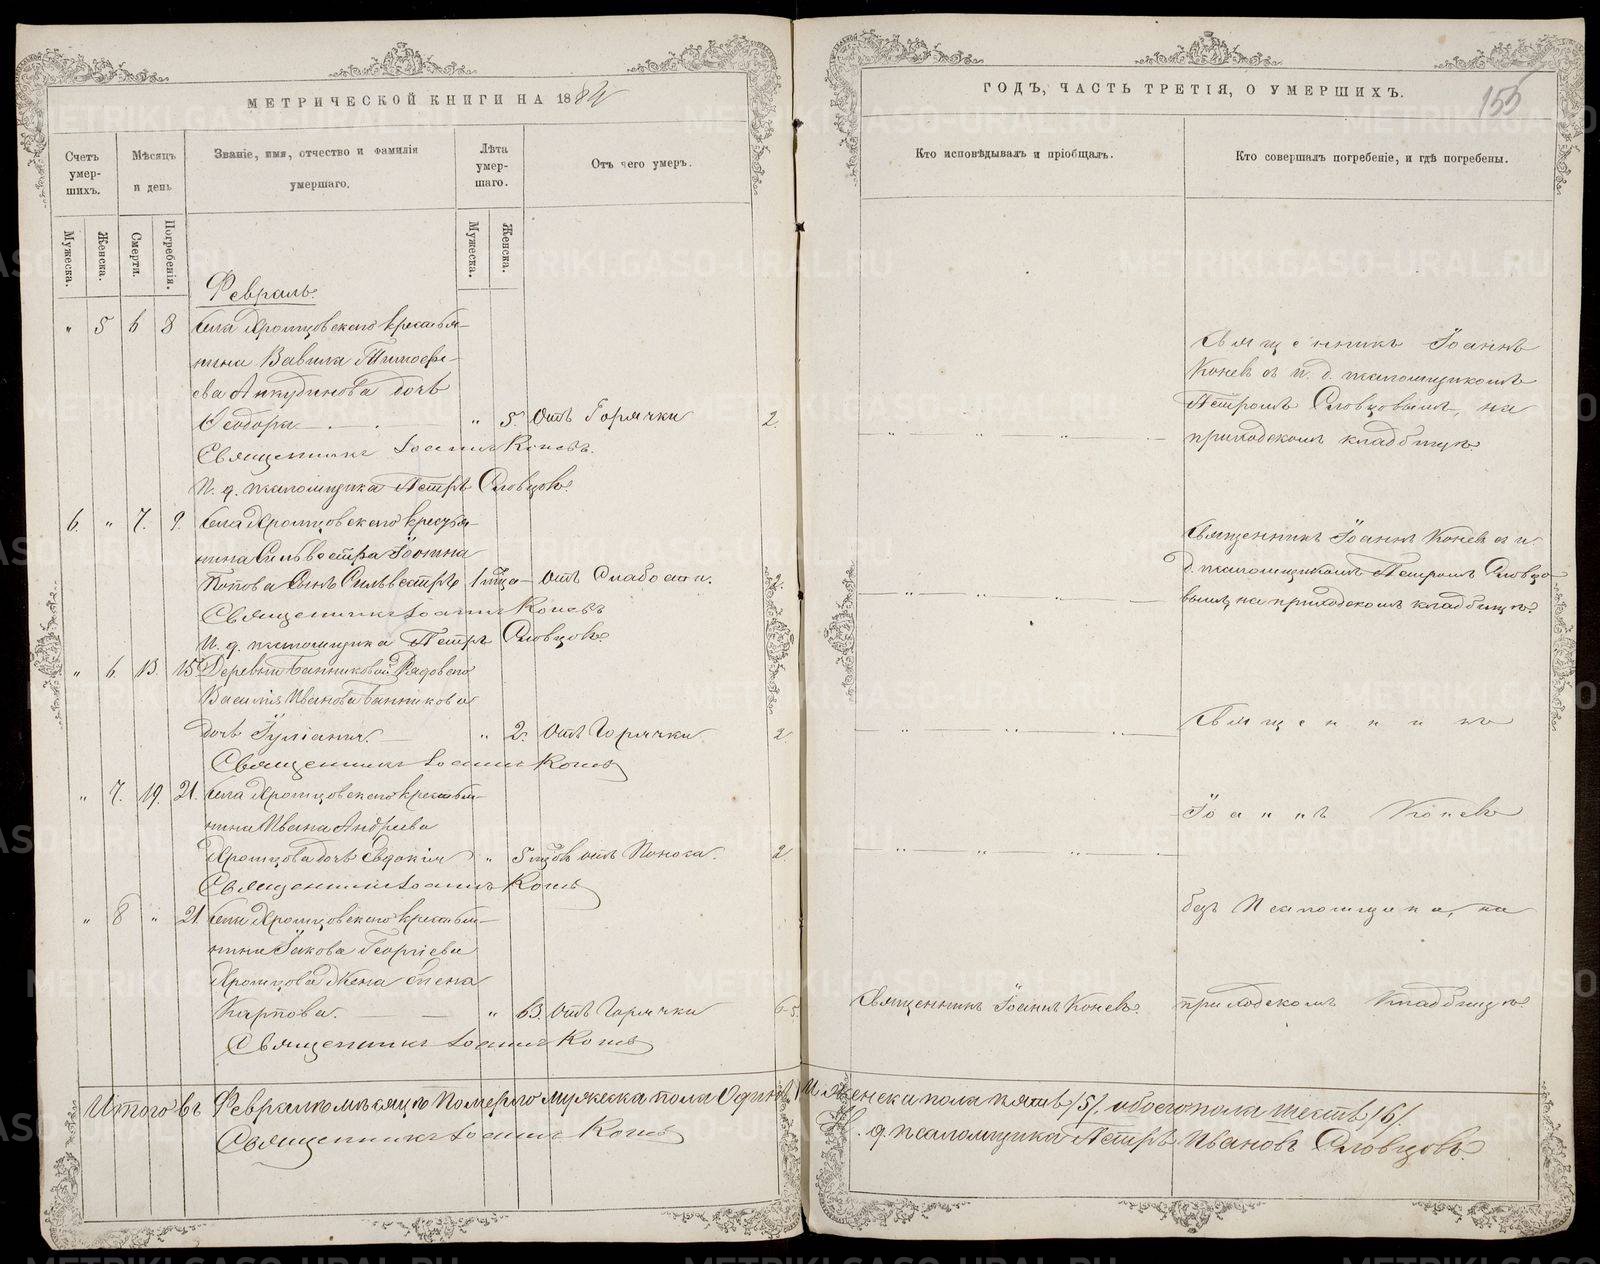 МЕТРИЧЕСКОЙ КНИГИ НА 1884
Счетъ умер-шихъ.
Мѣсяцъ и день
Званіе, имя, отчество и фамилія умершаго.
Лѣта умер-шаго.
Отъ чего умеръ.
Мужеска.
Женска.
Смерти.
Погребенія.
Мужеска.
Женска.
Февраль.
" 5 6 8 Села Храмцовскаго крестья-
нина Вавила Тимофе-
ева Анкудинова дочь
Ѳеодора " 5. Отъ Горячки 2.
Священникъ Іоаннъ Коневъ.
И. д. псаломщика Петръ Словцовъ.
6. " 7. 9. Села Храмцовскаго крестья-
нина Сильвестра Іоанна
Попова сынъ Сильвестръ 1 м̃ца Отъ Слабости. 2.
Священникъ Іоаннъ Коневъ
И. д. псаломщика Петръ Словцовъ
" 6 13. 15 Деревни Банниковой Рядоваго
Василія Иванова Банникова
дочь Іуліанія. " 2. Отъ Горячки 2.
Священникъ Іоаннъ Коневъ
" 7. 19. 21. Села Храмцовскаго крестья-
нина Ивана Андреева
Храмцова дочь Евдокія " 5 м̃цовъ отъ Поноса. 2.
Священникъ Іоаннъ Коневъ
" 8 " 21. Села Храмцовскаго крестья-
нина Іакова Георгіева
Храмцова Жена Елена
Карпова. " 63. Отъ Горячки 6-5.
Священникъ Іоаннъ Коневъ
Итого въ Февралѣ мѣсяцѣ Померло мужеска пола Одинъ /1/
Священникъ Іоаннъ Коневъ
ГОДЪ, ЧАСТЬ ТРЕТІЯ, О УМЕРШИХЪ.
155
Кто исповѣдывалъ и пріобщалъ.
Кто совершалъ погребеніе, и гдѣ погребены.
Священникъ Іоаннъ
Коневъ съ и. д. псаломщикомъ
Петромъ Словцовымъ, на
приходскомъ кладбищѣ.
Священникъ Іоаннъ Коневъ съ и.
д. псаломщикомъ Петромъ Словцо-
вымъ, на приходскомъ кладбищѣ.
Священникъ
Іоаннъ Коневъ
безъ Псаломщика, на
Священникъ Іоаннъ Коневъ. приходскомъ Кладбищѣ.
И женска пола пять /5/. обоего пола шесть /6/.
И. д. псаломщика Петръ Ивановъ Словцовъ.